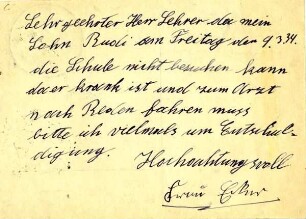 Sehr geehrter Herr Lehrer da mein
Sohn Rudi am Freitag den 9.3.34.
die Schule nicht besuchen kann
da er krank ist und zum Arzt
nach Reden fahren muss
bitte ich vielmals um Entschul-
digung. Hochachtungsvoll
Frau